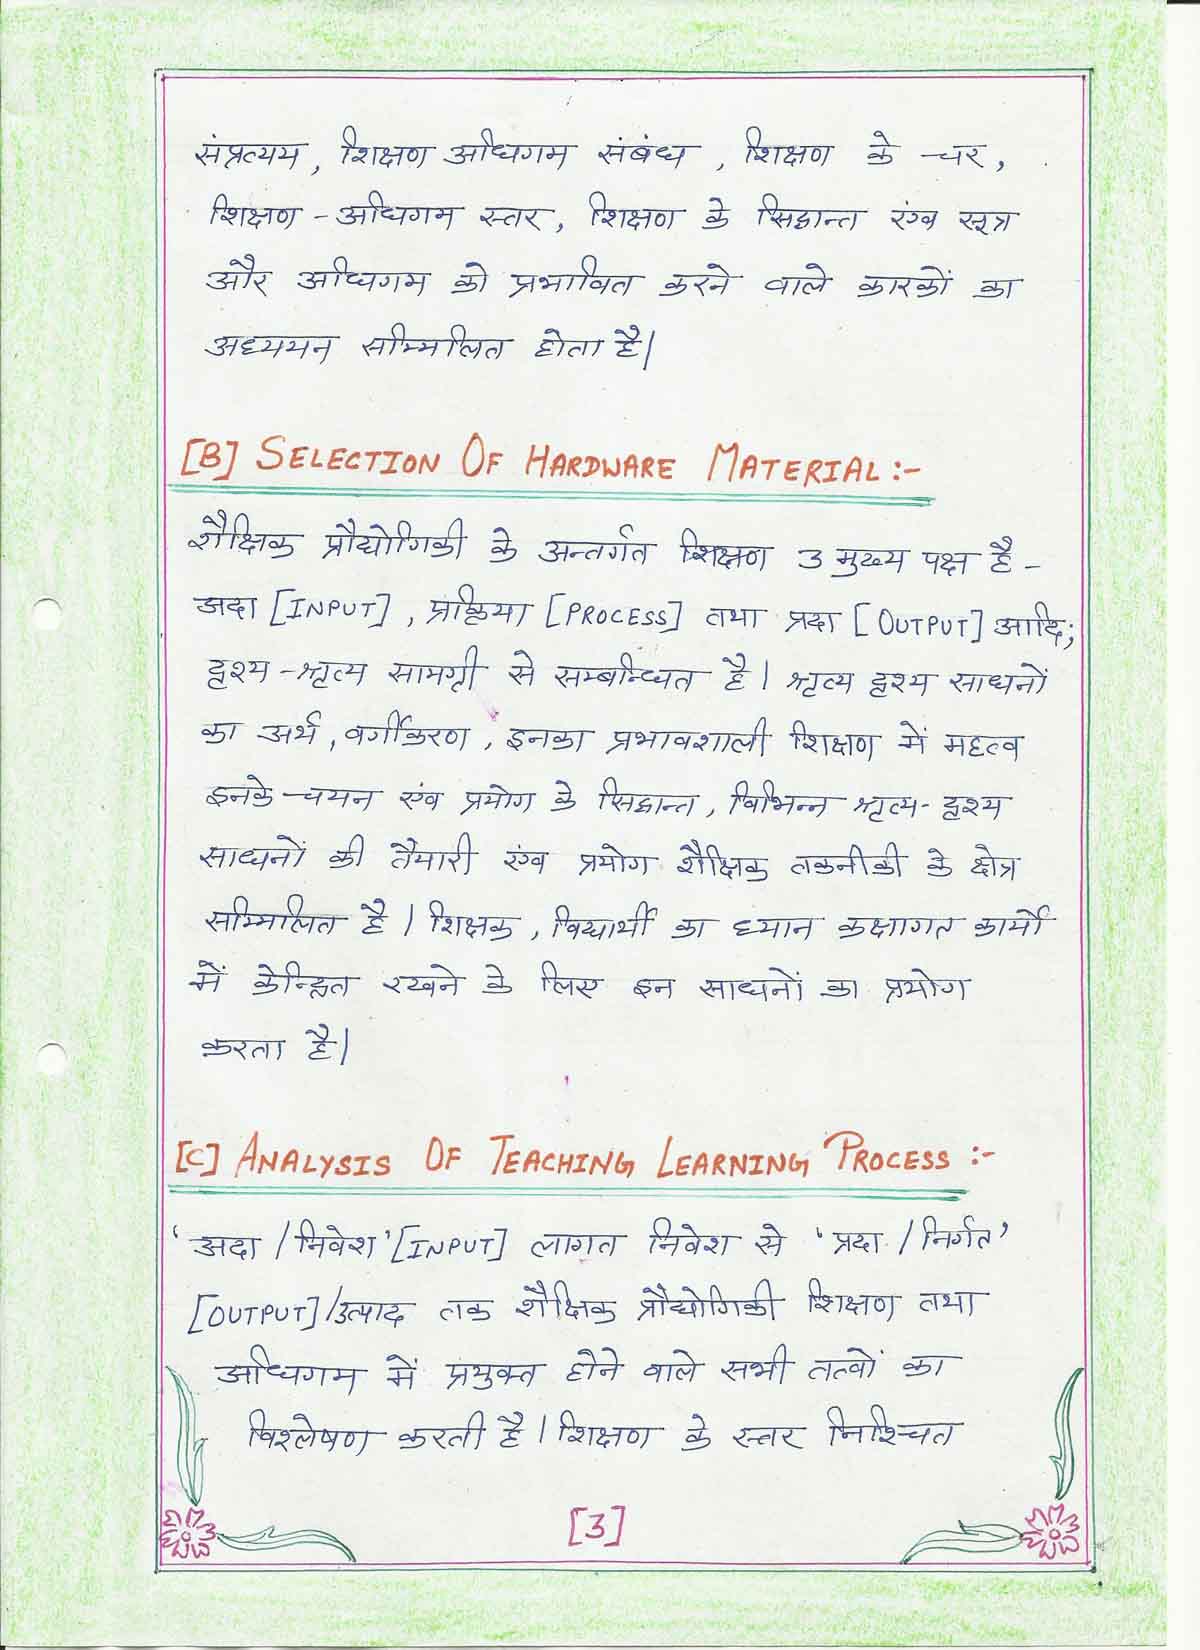 संप्रत्यय, शिक्षण अधिगम संबंध, शिक्षण के चर,
शिक्षण - अधिगम स्तर, शिक्षण के सिद्धान्त एंव सूत्र
और अधिगम को प्रभावित करने वाले कारकों का
अध्ययन सम्मिलित होता है।
[B] SELECTION OF HARDWARE MATERIAL :-
शैक्षिक प्रौद्योगिकी के अन्तर्गत शिक्षण 3 मुख्य पक्ष है -
अदा [INPUT], प्रक्रिया [PROCESS] तथा प्रदा [OUTPUT] आदि;
दृश्य - श्रृत्य सामग्री से सम्बन्धित है। श्रृत्य दृश्य साधनों
का अर्थ, वर्गीकरण, इनका प्रभावशाली शिक्षण में महत्व
इनके चयन एंव प्रयोग के सिद्धान्त, विभिन्न श्रृत्य - दृश्य
साधनों की तैयारी एंव प्रयोग शैक्षिक तकनीकी के क्षेत्र
सम्मिलित है। शिक्षक, विद्यार्थी का ध्यान कक्षागत कार्यों
में केन्द्रित रखने के लिए इन साधनों का प्रयोग
करता है।
[C] ANALYSIS OF TEACHING LEARNING PROCESS :-
'अदा / निवेश' [INPUT] लागत निवेश से 'प्रदा / निर्गत'
[OUTPUT]/उत्पाद तक शैक्षिक प्रौद्योगिकी शिक्षण तथा
अधिगम में प्रयुक्त होने वाले सभी तत्वों का
विश्लेषण करती है। शिक्षण के स्तर निश्चित
[3]